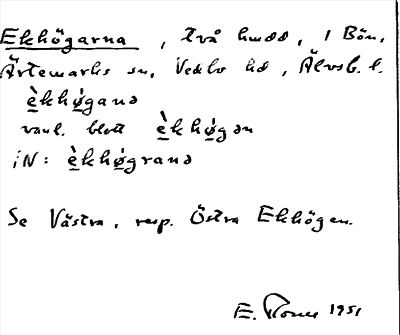 Ekhögarna, två hmdd, i Bön,
Ärtemarks sn, Vedbo hd, Älvsb. l.
è̱khø̱̀gana
vanl. blott è̱khø̱gən
iN: è̱khø̱̀grana
Se Västra, resp. Östra Ekhögen.
E. 1951